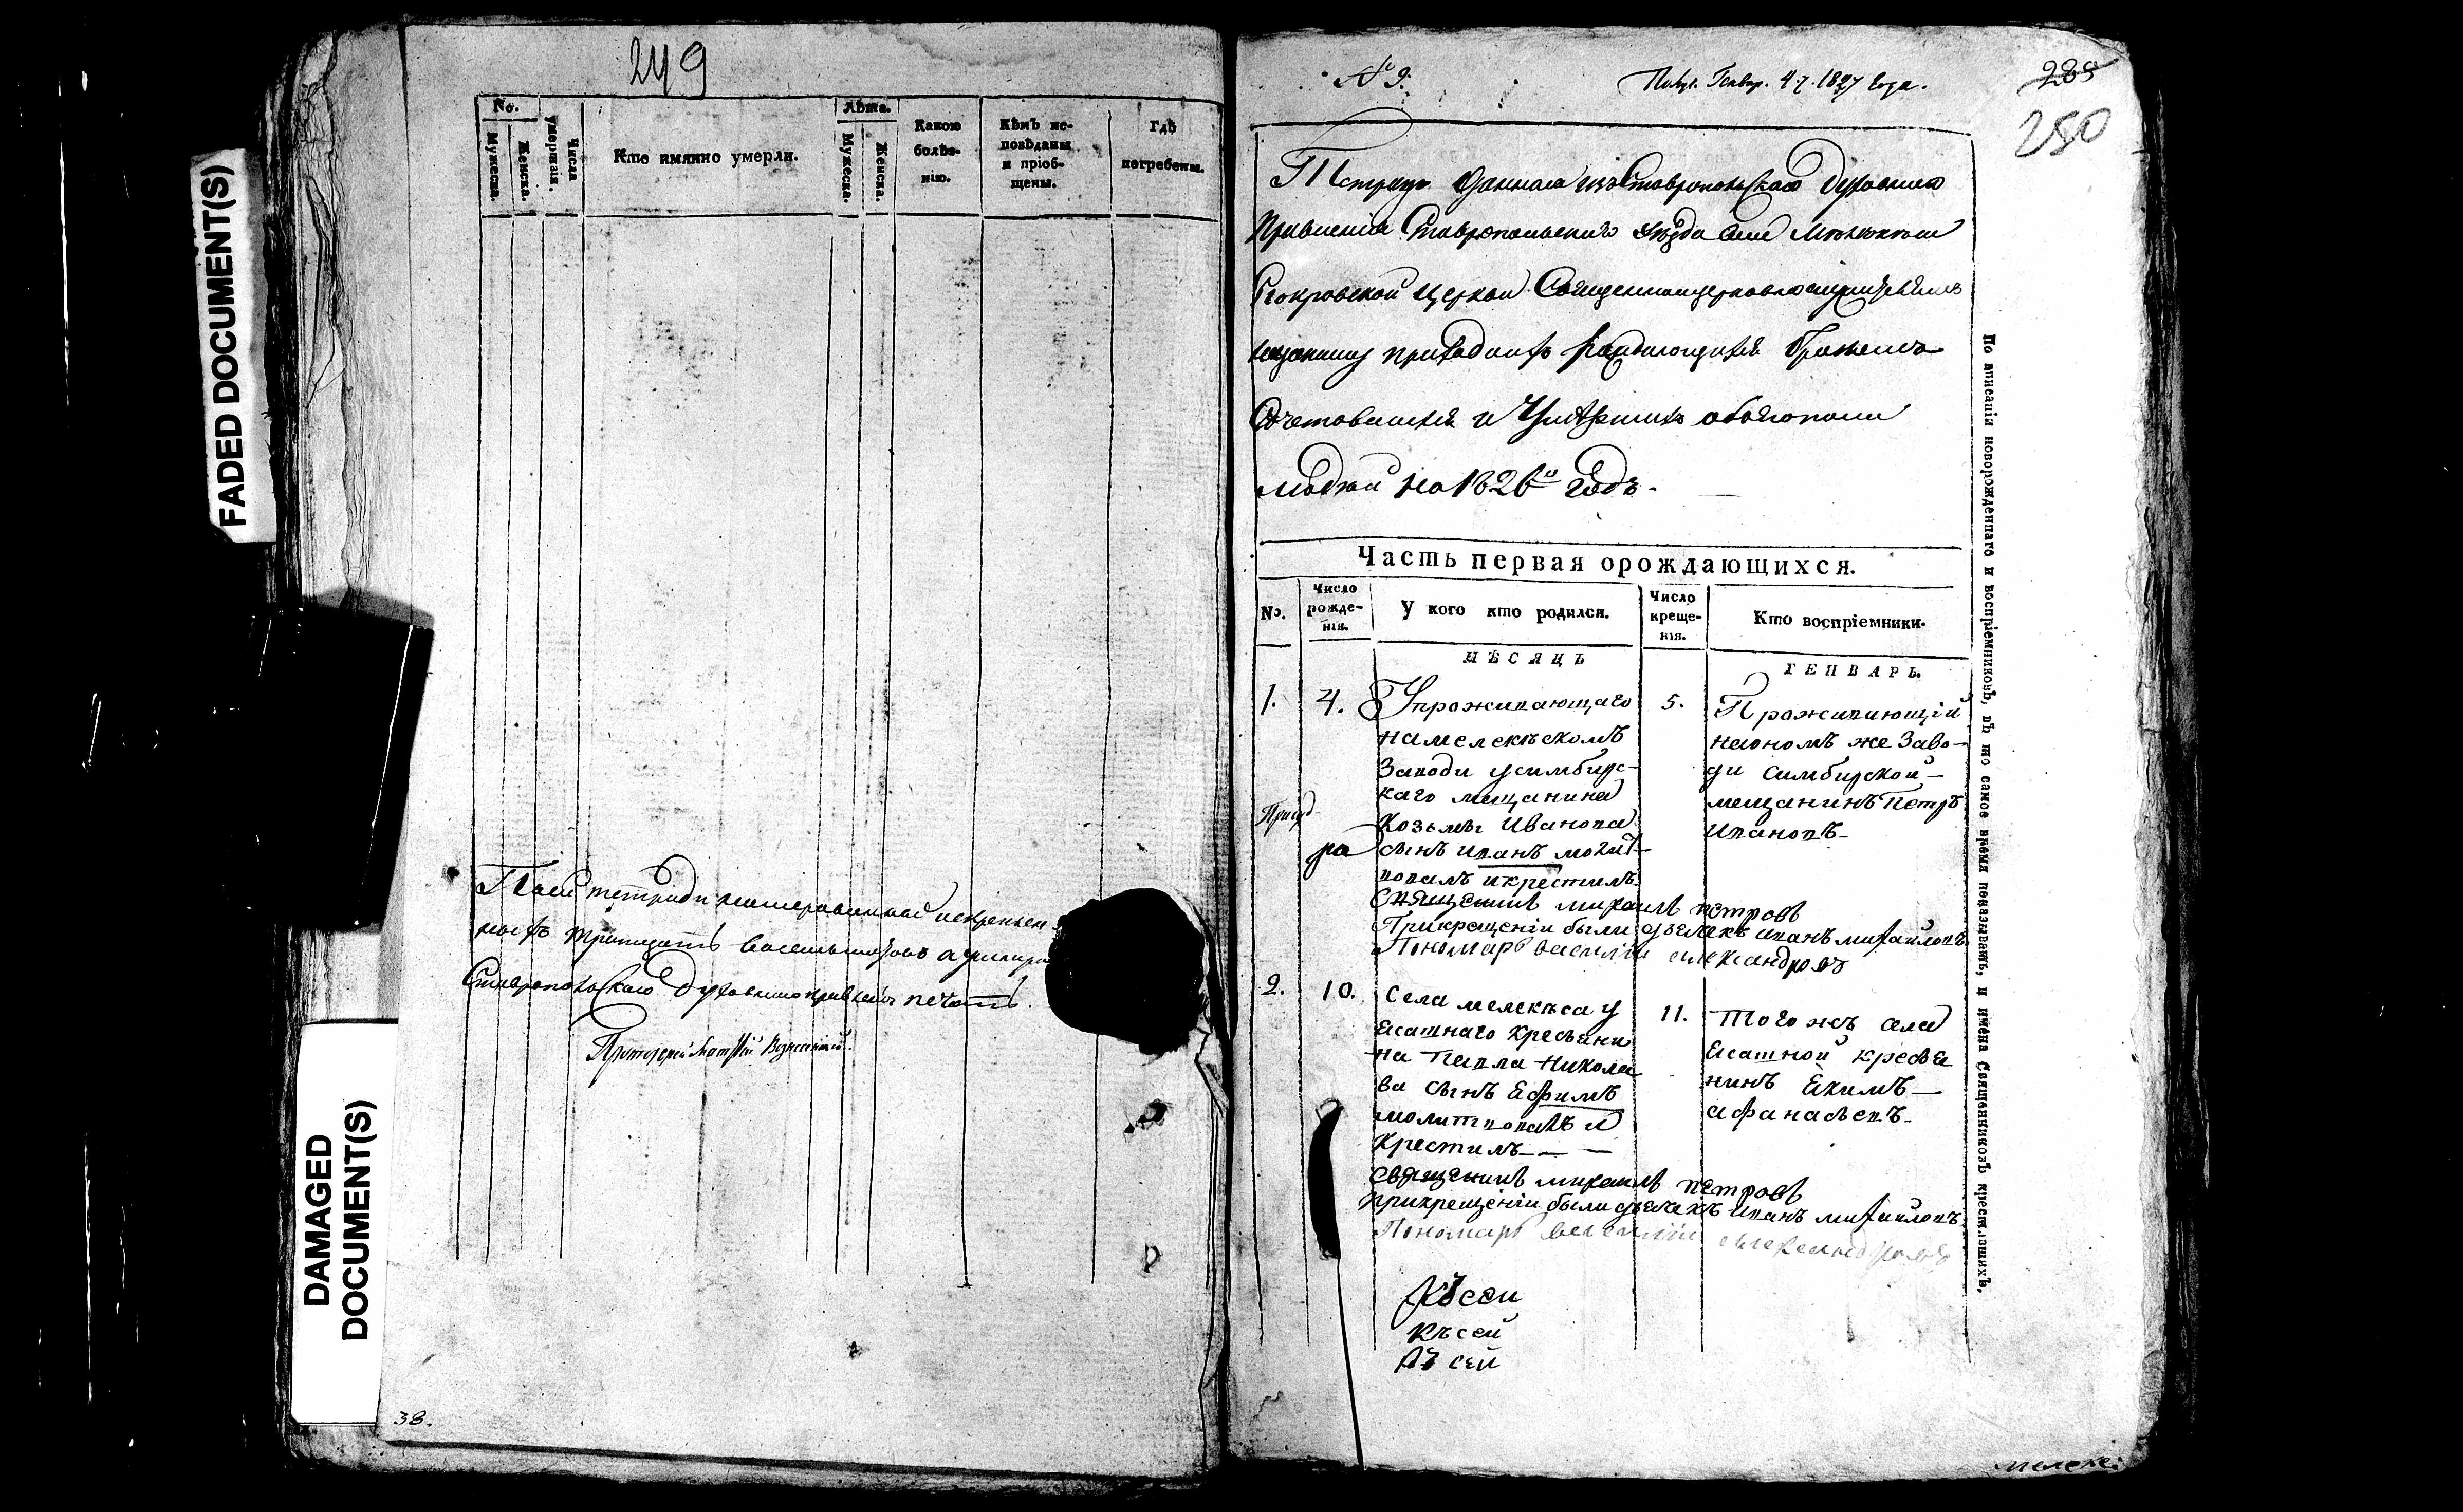 FADED DOCUMENT(S)
DAMAGED
DOCUMENT(S)
249
No.
Мужеска.
Женска.
Числа
умершія.
Кто имянно умерли.
Лѣта.
Мужеска.
Женска.
Какою
болѣз-
нію.
Кѣмъ ис-
повѣданы
и пріоб-
щены.
Гдѣ
погребены.
тетради
тритцать
Ставропольскаго духовнаго правленія печать.
Протоіерей
38.
№ 9.
Получ. Генвар. 4. 1827 года.
285
250
Тетрадь данная изъ Ставропольскаго духовнаго
Правленія Ставропольскаго уѣзда села
Покровской церкви
приходѣ раждающихся бракомъ
Сочетавшихся и Умершихъ обоего пола
людей на 1826й годъ.
Часть первая орождающихся.
No.
Число
рожде-
нія.
У кого кто родился.
Число
креще-
нія.
Кто воспріемники.
МѢСЯЦЪ
ГЕНВАРЬ.
1. 4. У проживающаго
намелекѣскомъ
Заводи усимбирс-
каго мещанина
Козьмы Иванова
сынъ иванъ молит-
вовалъ икрестилъ
Священникъ михаилъ петровъ
Прикрещеніи были дьячекъ иванъ михайловъ
Пономарь василіи александровъ
5. Проживающій
наономъ же Заво-
ди симбирской
мещанинъ Петръ
ивановъ
2. 10. Села мелекѣса у
ясашнаго кресьяни
на Павла Никола
ва сынъ Ефимъ
молитвовалъ и
крестилъ
священникъ михаилъ петровъ
прикрещеніи были дьячекъ иванъ михайловъ
Пономарь василіи александровъ
11. Того жъ села
ясашной кресья
нинъ Екимъ
афанасьевъ
Къ сей
къ сей
Къ сей
По вписаніи новорожденнаго и воспріемниковъ, въ то самое время показывать, и имена Священниковъ крестившихъ.